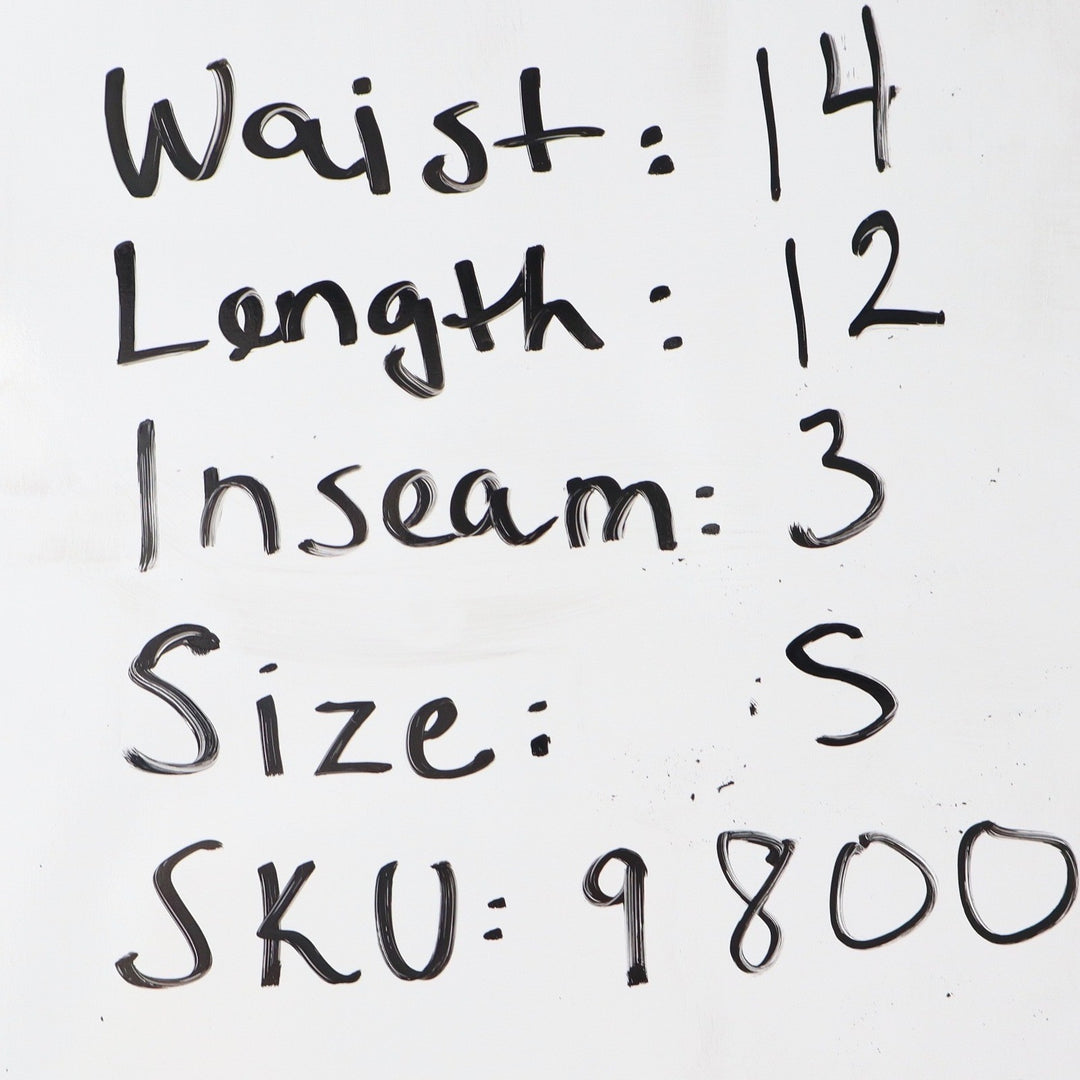 Waist: 14
Length: 12
Inseam: 3
Size: S
SKU: 9800